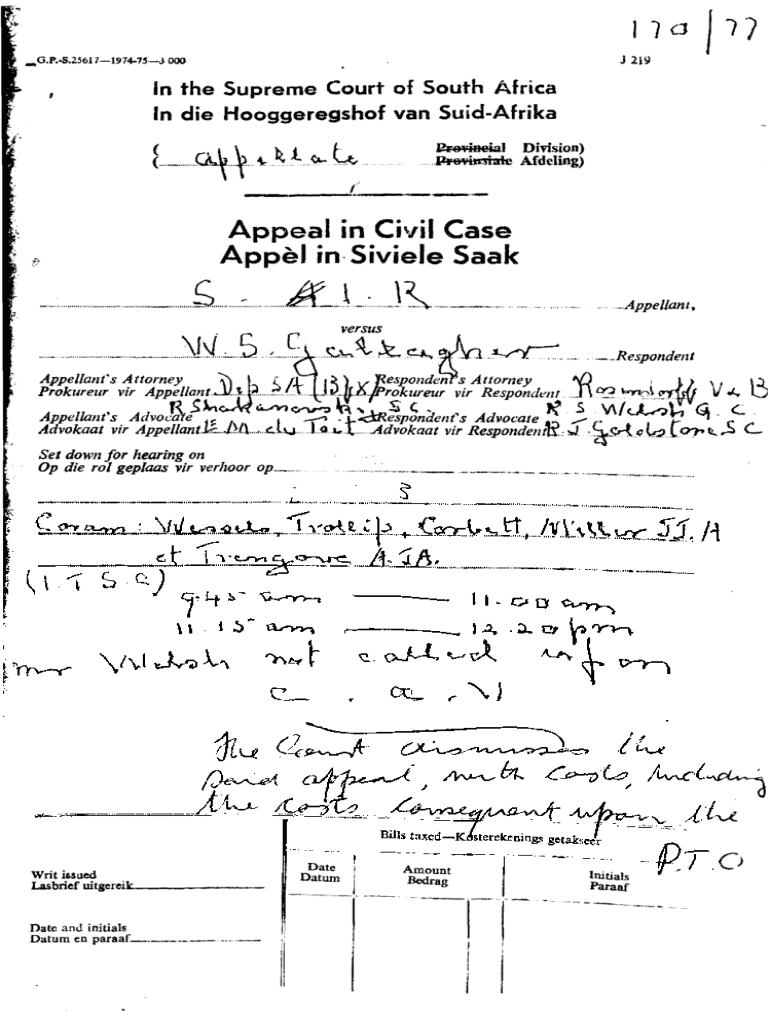 170/77
G.P.-S.25617—1974-75—3 000 J 219
In the Supreme Court of South Africa
In die Hooggeregshof van Suid-Afrika
( Appellate Provincial Division)
Provinsiale Afdeling)
Appeal in Civil Case
Appèl in Siviele Saak
S. A. I. R Appellant,
versus
W. S. Gallagher Respondent
Appellant's Attorney Respondent's Attorney
Prokureur vir Appellant Dep SA (Bfx) Prokureur vir Respondent Rosendorff V & B
Appellant's Advocate S.C. Respondent's Advocate R S Welsh Q. C.
Advokaat vir Appellant E M du Toit Advokaat vir Respondent R. J. Goldstone SC
Set down for hearing on
Op die rol geplaas vir verhoor op
3
Coram: Wessels, Trollip, Corbett, Miller JJ. A
et Trengove A. JA.
(I. T S. C)
9.45 am — 11.00 am
11.15 am — 12.20 pm
Mr Welsh not called upon
C. a. V
The Court dismisses the
said appeal, with costs, including
the costs consequent upon the
Bills taxed—Kosterekenings getakseer
P.T.O
Writ issued
Lasbrief uitgereik
Date Amount Initials
Datum Bedrag Paraaf
Date and initials
Datum en paraaf